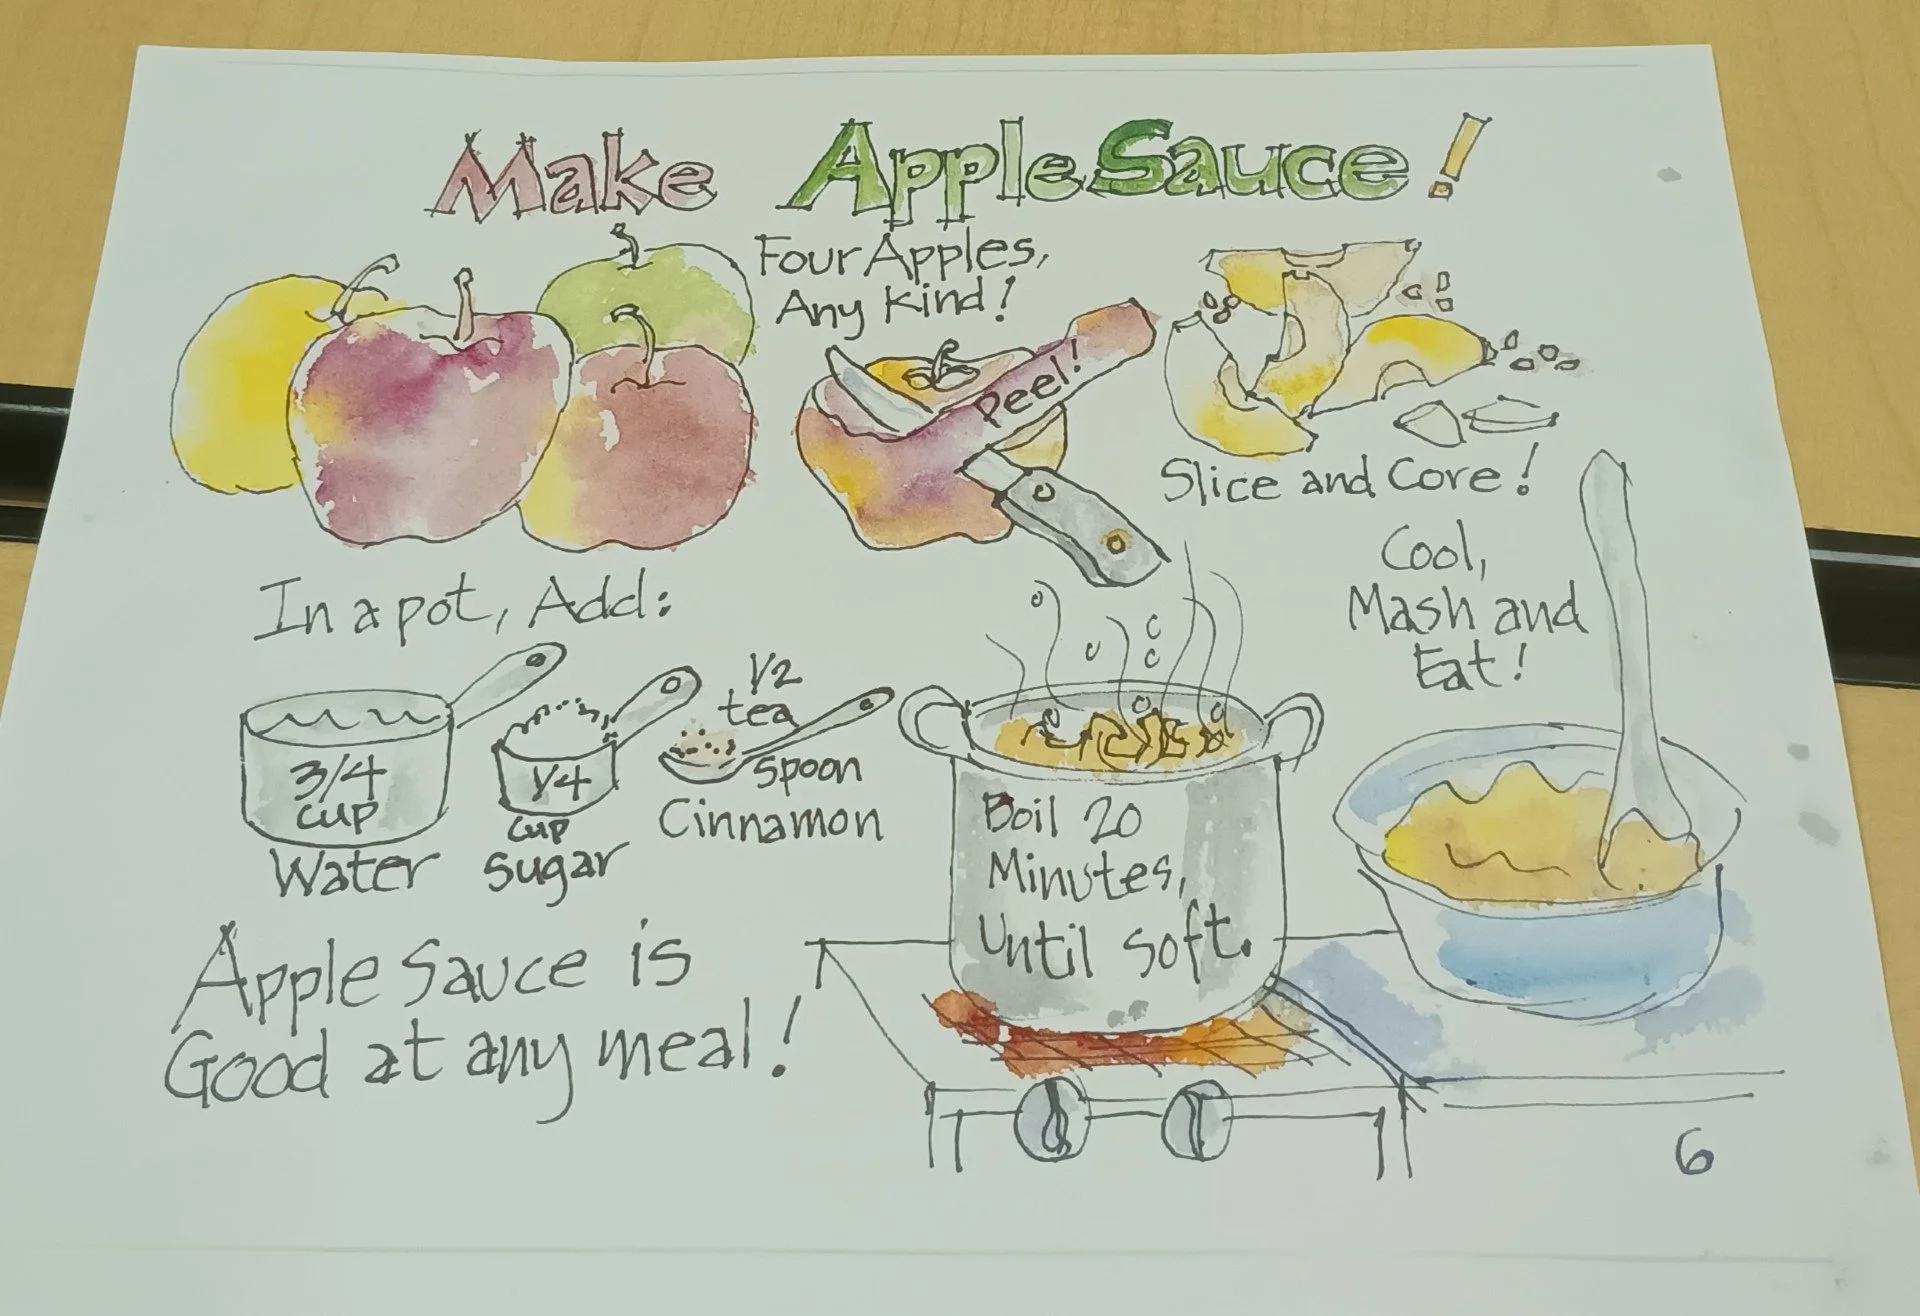 Make Apple Sauce!
Four Apples,
Any Kind!
Peel!
Slice and Core!
In a pot, Add:
3/4
cup
Water
1/4
cup
sugar
1/2
tea
spoon
Cinnamon
Boil 20
Minutes,
Until soft.
Cool,
Mash and
Eat!
Apple Sauce is
Good at any meal!
6